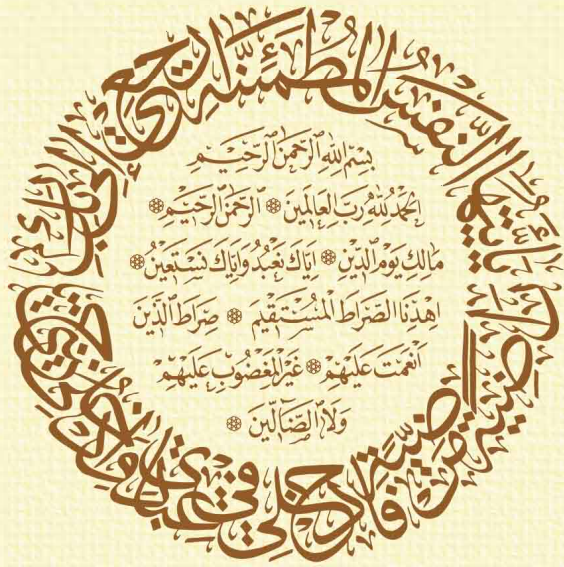 يَا أَيَّتُهَا النَّفْسُ الْمُطْمَئِنَّةُ ارْجِعِي إِلَىٰ رَبِّكِ رَاضِيَةً مَرْضِيَّةً فَادْخُلِي فِي عِبَادِي وَادْخُلِي جَنَّتِي
بِسْمِ اللهِ الرَّحْمٰنِ الرَّحِيمِ
اَلْحَمْدُ لِلّٰهِ رَبِّ الْعَالَمِينَ ❁ اَلرَّحْمٰنِ الرَّحِيمِ ❁
مَالِكِ يَوْمِ الدِّينِ ❁ اِيَّاكَ نَعْبُدُ وَاِيَّاكَ نَسْتَعِينُ ❁
اِهْدِنَا الصِّرَاطَ الْمُسْتَقِيمَ ❁ صِرَاطَ الَّذِينَ
اَنْعَمْتَ عَلَيْهِمْ ❁ غَيْرِ الْمَغْضُوبِ عَلَيْهِمْ
وَلَا الضَّالِّينَ ❁